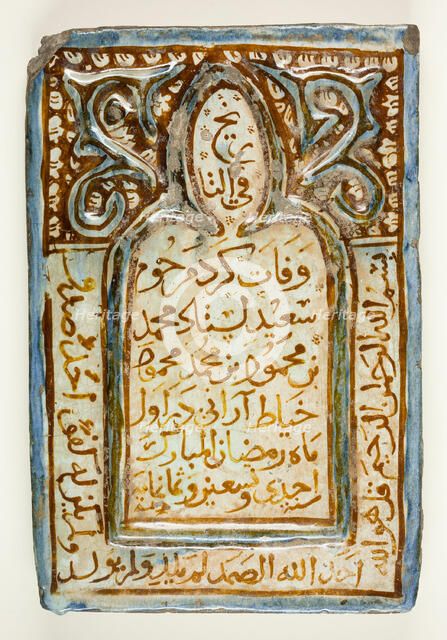 ريخ
في التا
وفات کرد مرحوم
سعيد محمد
بن محمود بن محمد محمود
خياط آرانى در اول
ماه رمضان المبارك
سنه احدى و تسعين و ثمانمايه
بسم الله الرحمن الرحيم قل هو الله
احد الله الصمد لم يلد ولم يولد
ولم يكن له كفوا احد